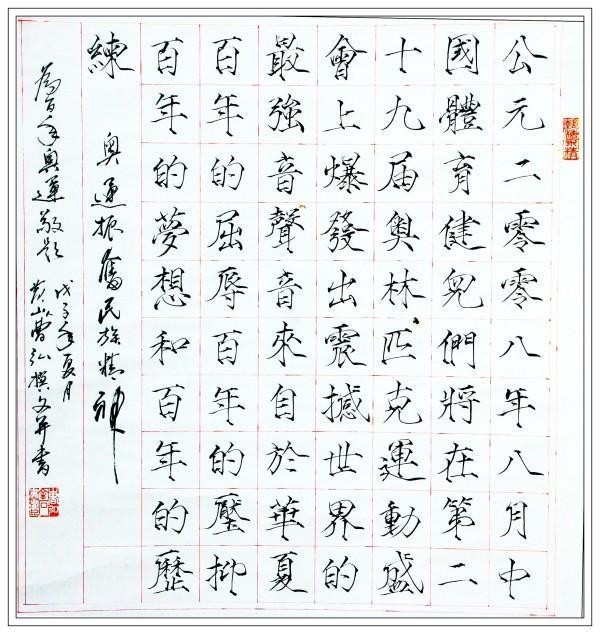 公元二零零八年八月中
國體育健兒們將在第二
十九届奥林匹克運動盛
會上爆發出震撼世界的
最強音聲音來自於華夏
百年的屈辱百年的壓抑
百年的夢想和百年的歷
練
奥運振奮民族精神
為百年奥運敬題
戊子年夏月
黄山曹弘撰文并書